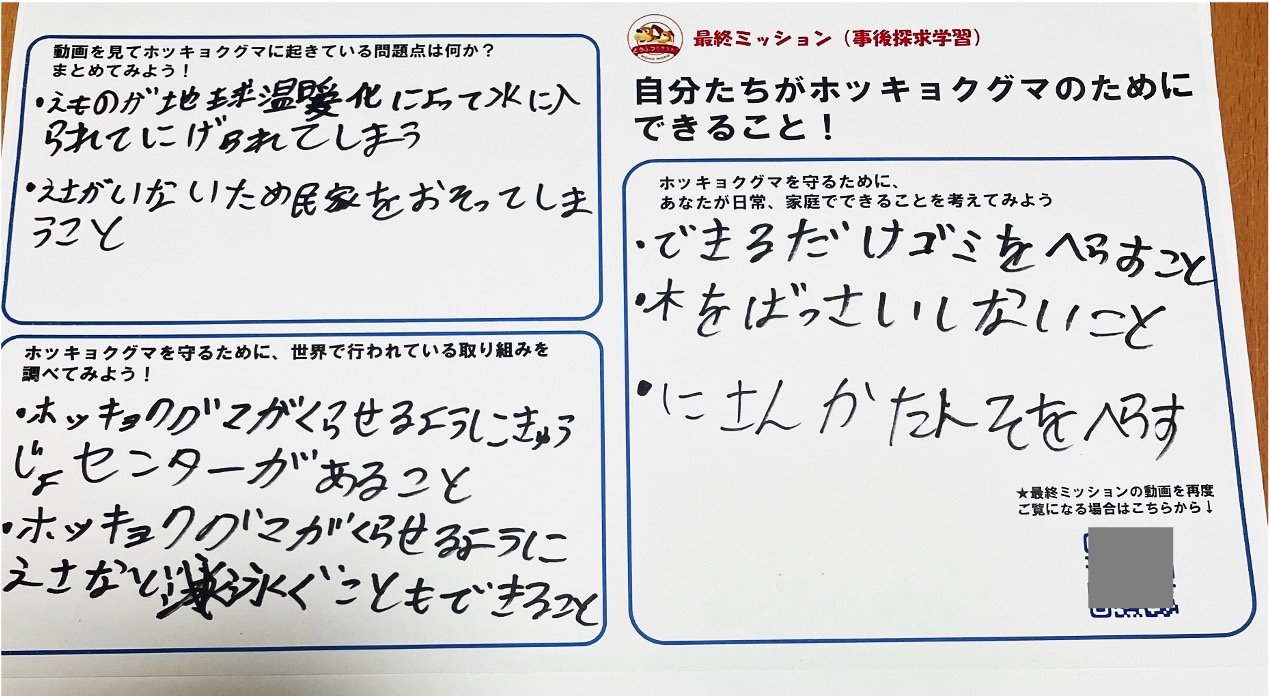 動画を見てホッキョクグマに起きている問題点は何か?
まとめてみよう!
・えものが地球温暖化によって水に入
られてにげられてしまう
・えさがいないため民家をおそってしま
うこと
ホッキョクグマを守るために、世界で行われている取り組みを
調べてみよう!
・ホッキョクグマがくらせるようにきゅう
じょセンターがあること
・ホッキョクグマがくらせるように
えさなど泳ぐこともできること
最終ミッション(事後探求学習)
自分たちがホッキョクグマのために
できること!
ホッキョクグマを守るために、
あなたが日常、家庭でできることを考えてみよう
・できるだけゴミをへらすこと
・木をばっさいしないこと
・にさんかたんそをへらす
★最終ミッションの動画を再度
ご覧になる場合はこちらから↓